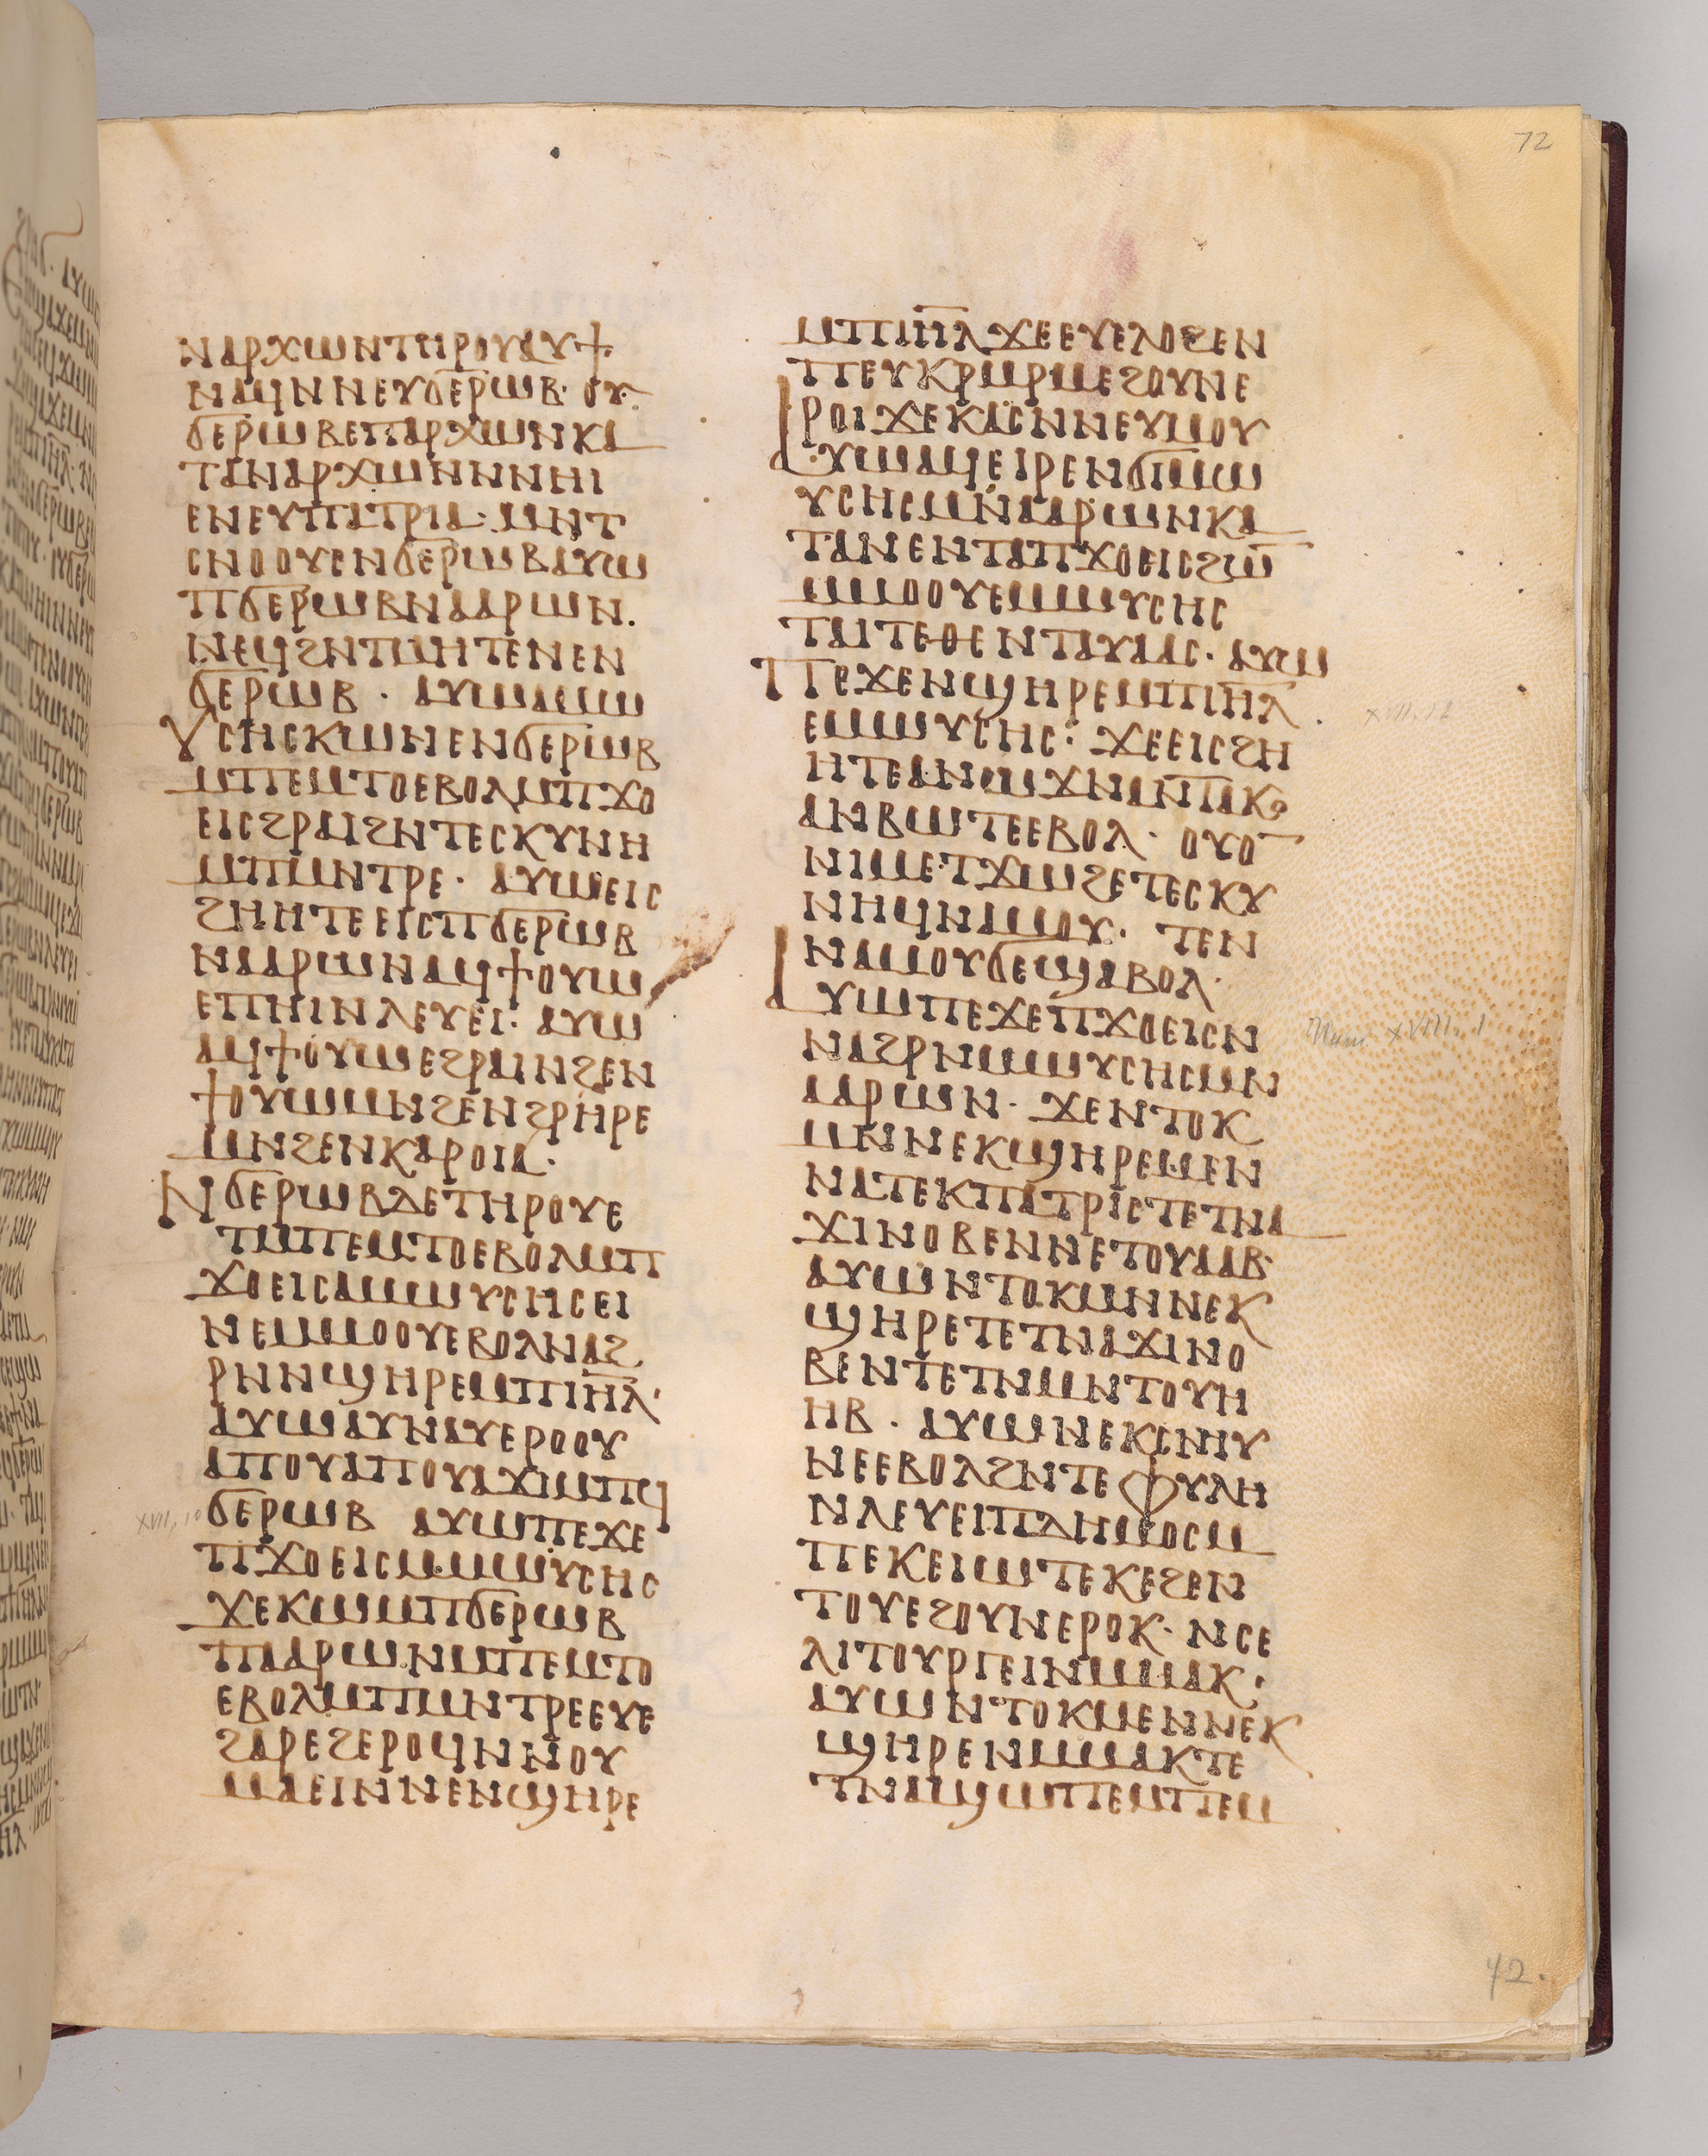 72
ⲛⲁⲣⲭⲱⲛⲧⲏⲣⲟⲩⲁⲩϯ
ⲛⲁϥⲛⲛⲉⲩϭⲉⲣⲱⲃ· ⲟⲩ
ϭⲉⲣⲱⲃⲉⲡⲁⲣⲭⲱⲛⲕⲁ
ⲧⲁⲛⲁⲣⲭⲱⲛⲛⲛⲏⲓ
ⲉⲛⲉⲩⲡⲁⲧⲣⲓⲁ· ⲙⲛⲧ
ⲥⲛⲟⲟⲩⲥⲛϭⲉⲣⲱⲃⲁⲩⲱ
ⲡϭⲉⲣⲱⲃⲛⲁⲁⲣⲱⲛ.
ⲛⲉϥϩⲛⲧⲙⲏⲧⲉⲛⲉⲛ
ϭⲉⲣⲱⲃ · ⲁⲩⲱⲁⲙⲱ
ⲩⲥⲏⲥⲕⲱⲛⲉⲛϭⲉⲣⲱⲃ
ⲙⲡⲉⲙⲧⲟⲉⲃⲟⲗⲙⲡϫⲟ
ⲉⲓⲥϩⲣⲁⲓϩⲛⲧⲉⲥⲕⲩⲛⲏ
ⲙⲡⲙⲛⲧⲣⲉ · ⲁⲩⲱⲉⲓⲥ
ϩⲏⲏⲧⲉⲉⲓⲥⲡϭⲉⲣⲱⲃ
ⲛⲁⲁⲣⲱⲛⲁϥϯⲟⲩⲱ
ⲉⲡⲏⲓⲛⲗⲉⲩⲉⲓ· ⲁⲩⲱ
ⲁϥϯⲟⲩⲱⲉϩⲣⲁⲓⲛϩⲉⲛ
ϯⲟⲩⲱⲙⲛϩⲉⲛϩⲣⲏⲣⲉ
ⲙⲛϩⲉⲛⲕⲁⲣⲟⲓⲁ·
ⲛϭⲉⲣⲱⲃⲇⲉⲧⲏⲣⲟⲩⲉ
ⲧⲙⲡⲉⲙⲧⲟⲉⲃⲟⲗⲙⲡ
ϫⲟⲉⲓⲥⲁⲙⲱⲩⲥⲏⲥⲉⲓ
ⲛⲉⲙⲙⲟⲟⲩⲉⲃⲟⲗⲛⲁϩ
ⲣⲛⲛϣⲏⲣⲉⲙⲡⲓⲏⲗ·
ⲁⲩⲱⲁⲩⲛⲁⲩⲉⲣⲟⲟⲩ
ⲁⲡⲟⲩⲁⲡⲟⲩⲁϫⲓⲙⲡϥ
XVII, 10 ϭⲉⲣⲱⲃ ⲁⲩⲱⲡⲉϫⲉ
ⲡϫⲟⲉⲓⲥⲙⲙⲱⲩⲥⲏⲥ
ϫⲉⲕⲱⲙⲡϭⲉⲣⲱⲃ
ⲡⲁⲁⲣⲱⲛⲙⲡⲉⲙⲧⲟ
ⲉⲃⲟⲗⲙⲡⲙⲛⲧⲣⲉⲉⲩⲉ
ϩⲁⲣⲉϩⲉⲣⲟϥⲛⲛⲟⲩ
ⲙⲁⲉⲓⲛⲛⲉⲛϣⲏⲣⲉ
ⲙⲡⲓⲏⲗϫⲉⲉⲩⲉⲗⲟϩⲉⲛ
ⲡⲉⲩⲕⲣⲙⲣⲙⲉϩⲟⲩⲛⲉ
ⲣⲟⲓϫⲉⲕⲁⲥⲛⲛⲉⲩⲙⲟⲩ
ⲁⲩⲱⲁϥⲉⲓⲣⲉⲛϭⲓⲙⲱ
ⲩⲥⲏⲥⲙⲛⲁⲁⲣⲱⲛⲕⲁ
ⲧⲁⲛⲉⲛⲧⲁⲡϫⲟⲉⲓⲥϩⲱ
ⲙⲙⲟⲟⲩⲉⲙⲙⲱⲩⲥⲏⲥ
ⲧⲁⲓⲧⲉⲑⲉⲛⲧⲁⲩⲁⲁⲥ· ⲁⲩⲱ
ⲡⲉϫⲉⲛϣⲏⲣⲉⲙⲡⲓⲏⲗ · XVII, 12
ⲉⲙⲱⲩⲥⲏⲥ: ϫⲉⲉⲓⲥϩⲏ
ⲏⲧⲉⲁⲛⲱϫⲛⲁⲛⲧⲁⲕⲟ
ⲁⲛⲃⲱⲧⲉⲉⲃⲟⲗ· ⲟⲩⲟ
ⲛⲓⲙⲉⲧϫⲱϩⲉⲧⲉⲥⲕⲩ
ⲛⲏϥⲛⲁⲙⲟⲩ· ⲧⲉⲛ
ⲛⲁⲙⲟⲩϭⲉϣⲁⲃⲟⲗ·
ⲁⲩⲱⲡⲉϫⲉⲡϫⲟⲉⲓⲥⲛ Num. XVIII, 1
ⲛⲁϩⲣⲛⲙⲱⲩⲥⲏⲥⲙⲛ
ⲁⲁⲣⲱⲛ· ϫⲉⲛⲧⲟⲕ
ⲙⲛⲛⲉⲕϣⲏⲣⲉⲙⲉⲛ
ⲛⲁⲧⲉⲕⲡⲁⲧⲣⲓⲥⲧⲉⲧⲛⲁ
ϫⲓⲛⲟⲃⲉⲛⲛⲉⲧⲟⲩⲁⲁⲃ·
ⲁⲩⲱⲛⲧⲟⲕⲙⲛⲛⲉⲕ
ϣⲏⲣⲉⲧⲉⲧⲛⲁϫⲓⲛⲟ
ⲃⲉⲛⲧⲉⲧⲛⲙⲛⲧⲟⲩⲏ
ⲏⲃ · ⲁⲩⲱⲛⲉⲕⲥⲛⲏⲩ
ⲛⲉⲉⲃⲟⲗϩⲛⲧⲉⲫⲩⲗⲏ
ⲛⲗⲉⲩⲉⲓⲡⲇⲏⲙⲟⲥⲙ
ⲡⲉⲕⲉⲓⲱⲧⲉⲕⲉϩⲉⲛ
ⲧⲟⲩⲉϩⲟⲩⲛⲉⲣⲟⲕ· ⲛⲥⲉ
ⲗⲓⲧⲟⲩⲣⲅⲉⲓⲛⲙⲙⲁⲕ·
ⲁⲩⲱⲛⲧⲟⲕⲙⲉⲛⲛⲉⲕ
ϣⲏⲣⲉⲛⲙⲙⲁⲕⲧⲉ
ⲧⲛⲁϣⲱⲡⲉⲙⲡⲉⲙ
42.